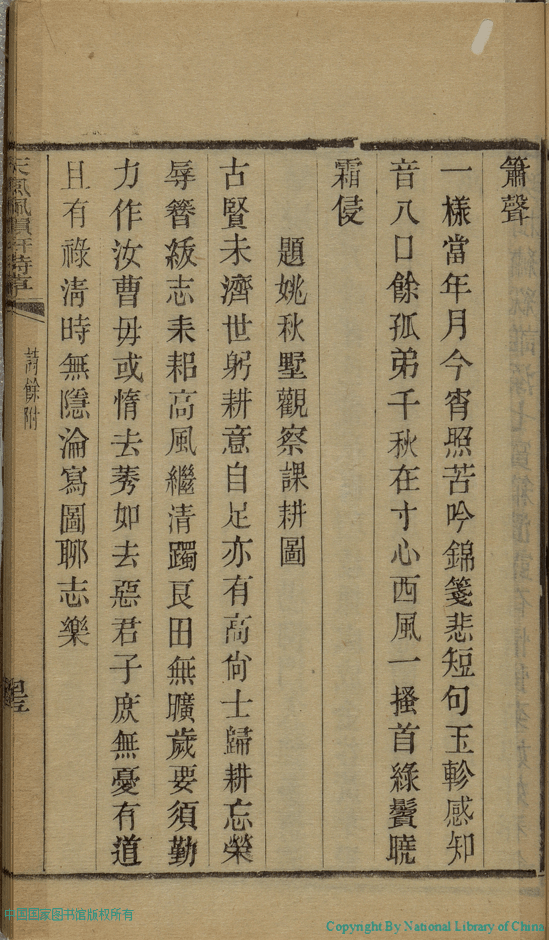 簫聲
一樣當年月今宵照苦吟錦箋悲短句玉軫感知
音八口餘孤弟千秋在寸心西風一搔首綠鬢曉
霜侵
題姚秋墅觀察課耕圖
古賢未濟世躬耕意自足亦有高尙士歸耕忘榮
辱簪紱志耒耜高風繼清躅良田無曠歲要須勤
力作汝曹毋或惰去莠如去惡君子庶無憂有道
且有祿淸時無隱淪寫圖聊志樂
詩餘附
中国国家图书馆版权所有
Copyright By National Library of China